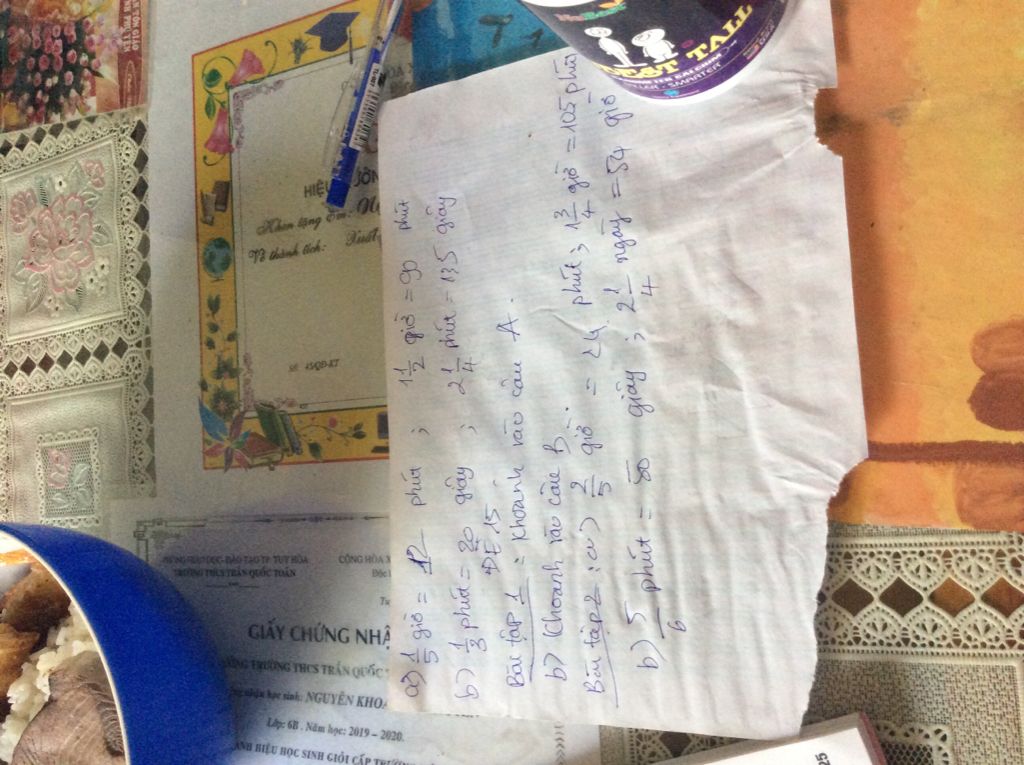 a) 1/5 giờ = 12 phút ; 1 1/2 giờ = 90 phút
b) 1/3 phút = 20 giây ; 2 1/4 phút = 135 giây
ĐỀ 15
Bài tập 1 : Khoanh vào câu A.
b) Khoanh vào câu B.
Bài tập 2 : a) 2/5 giờ = 24 phút ; 1 3/4 giờ = 105 phú
b) 5/6 phút = 50 giây ; 2 1/4 ngày = 54 giờ
HIỆU
Khen tặng Em:
Về thành tích: Xuất
Số: 45/QĐ-KT
PHÒNG GIÁO DỤC-ĐÀO TẠO TP TUY HÒA
TRƯỜNG THCS TRẦN QUỐC TOẢN
CỘNG HÒA X
Độc
GIẤY CHỨNG NHẬ
TRƯỜNG THCS TRẦN QUỐC
NGUYỄN KHOA
Lớp: 6B . Năm học: 2019 – 2020.
ANH HIỆU HỌC SINH GIỎI CẤP TRƯỜNG
BEST TALL
SMARTER
25